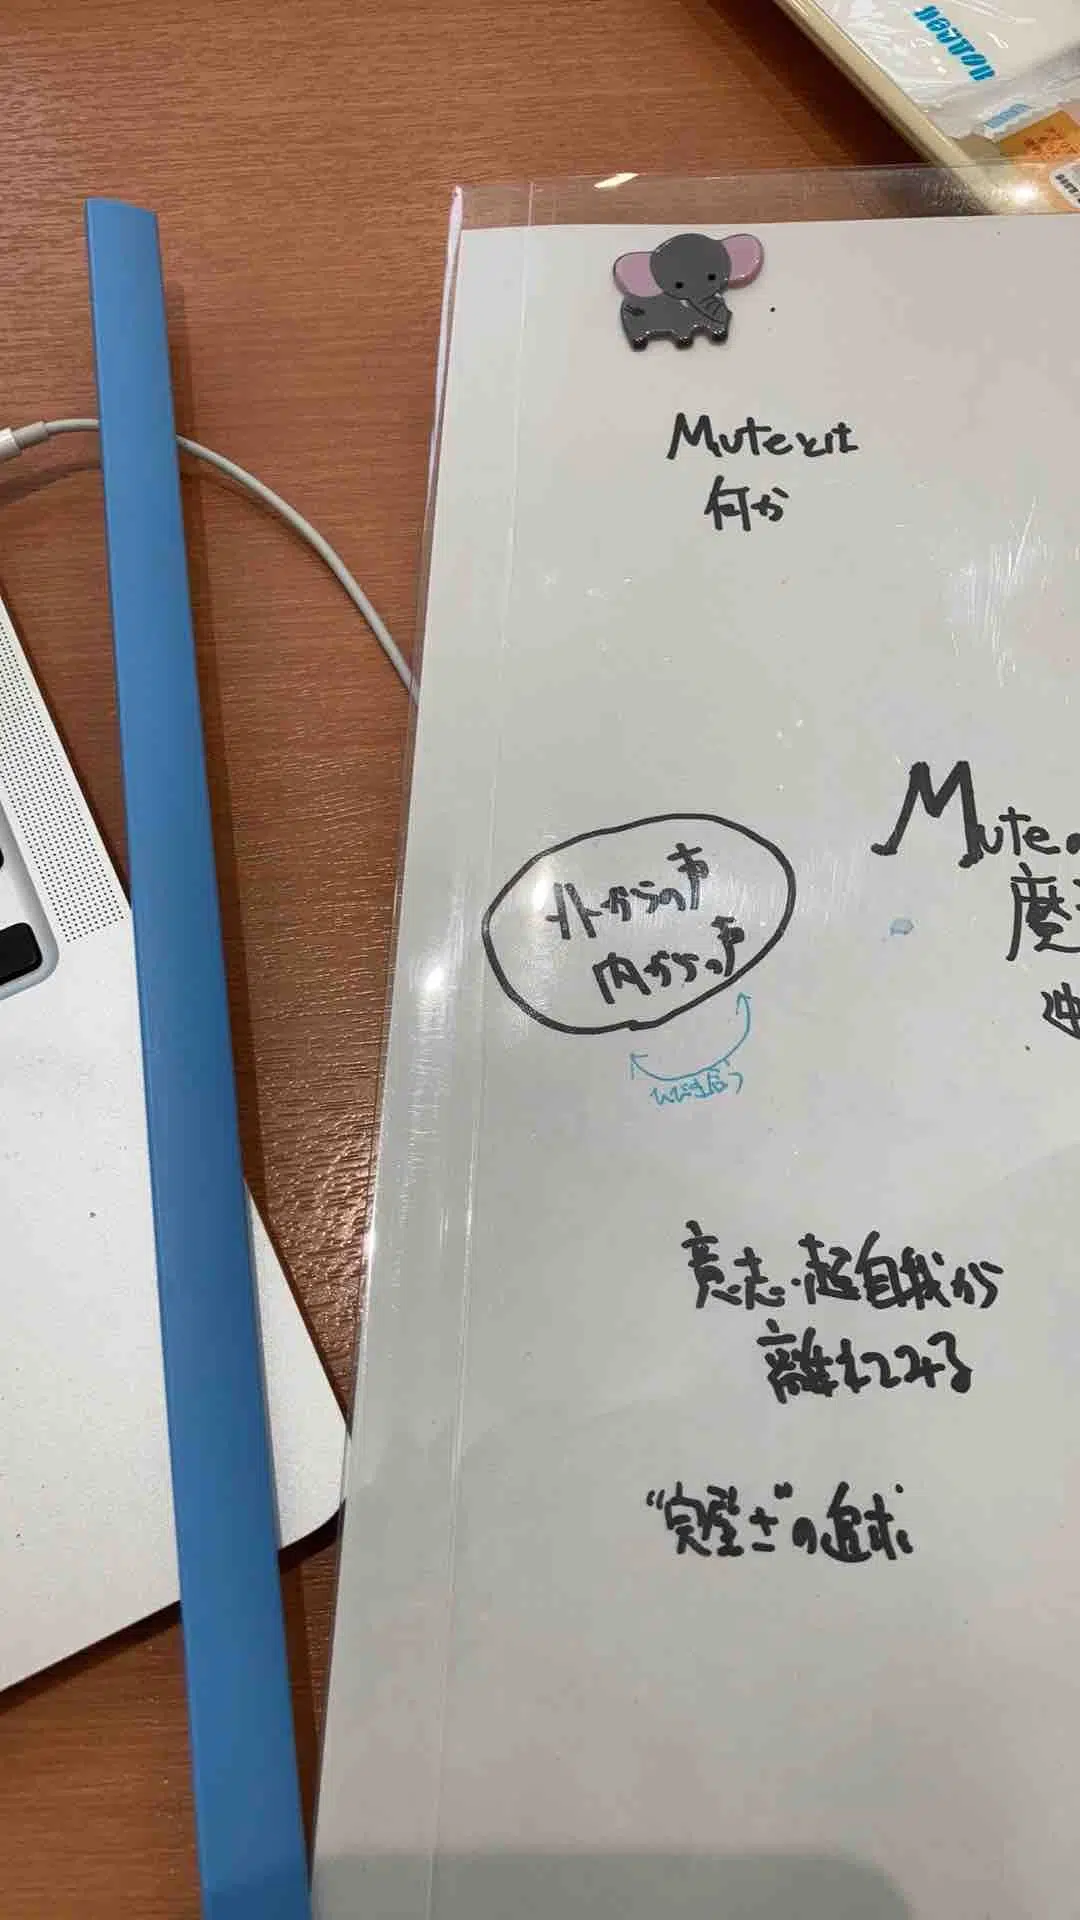 Muteとは
何か
Muteの
魔
外からの声
内からの声
ひびき合う
意志・超自我から
離れてみる
“完璧さ”の追求